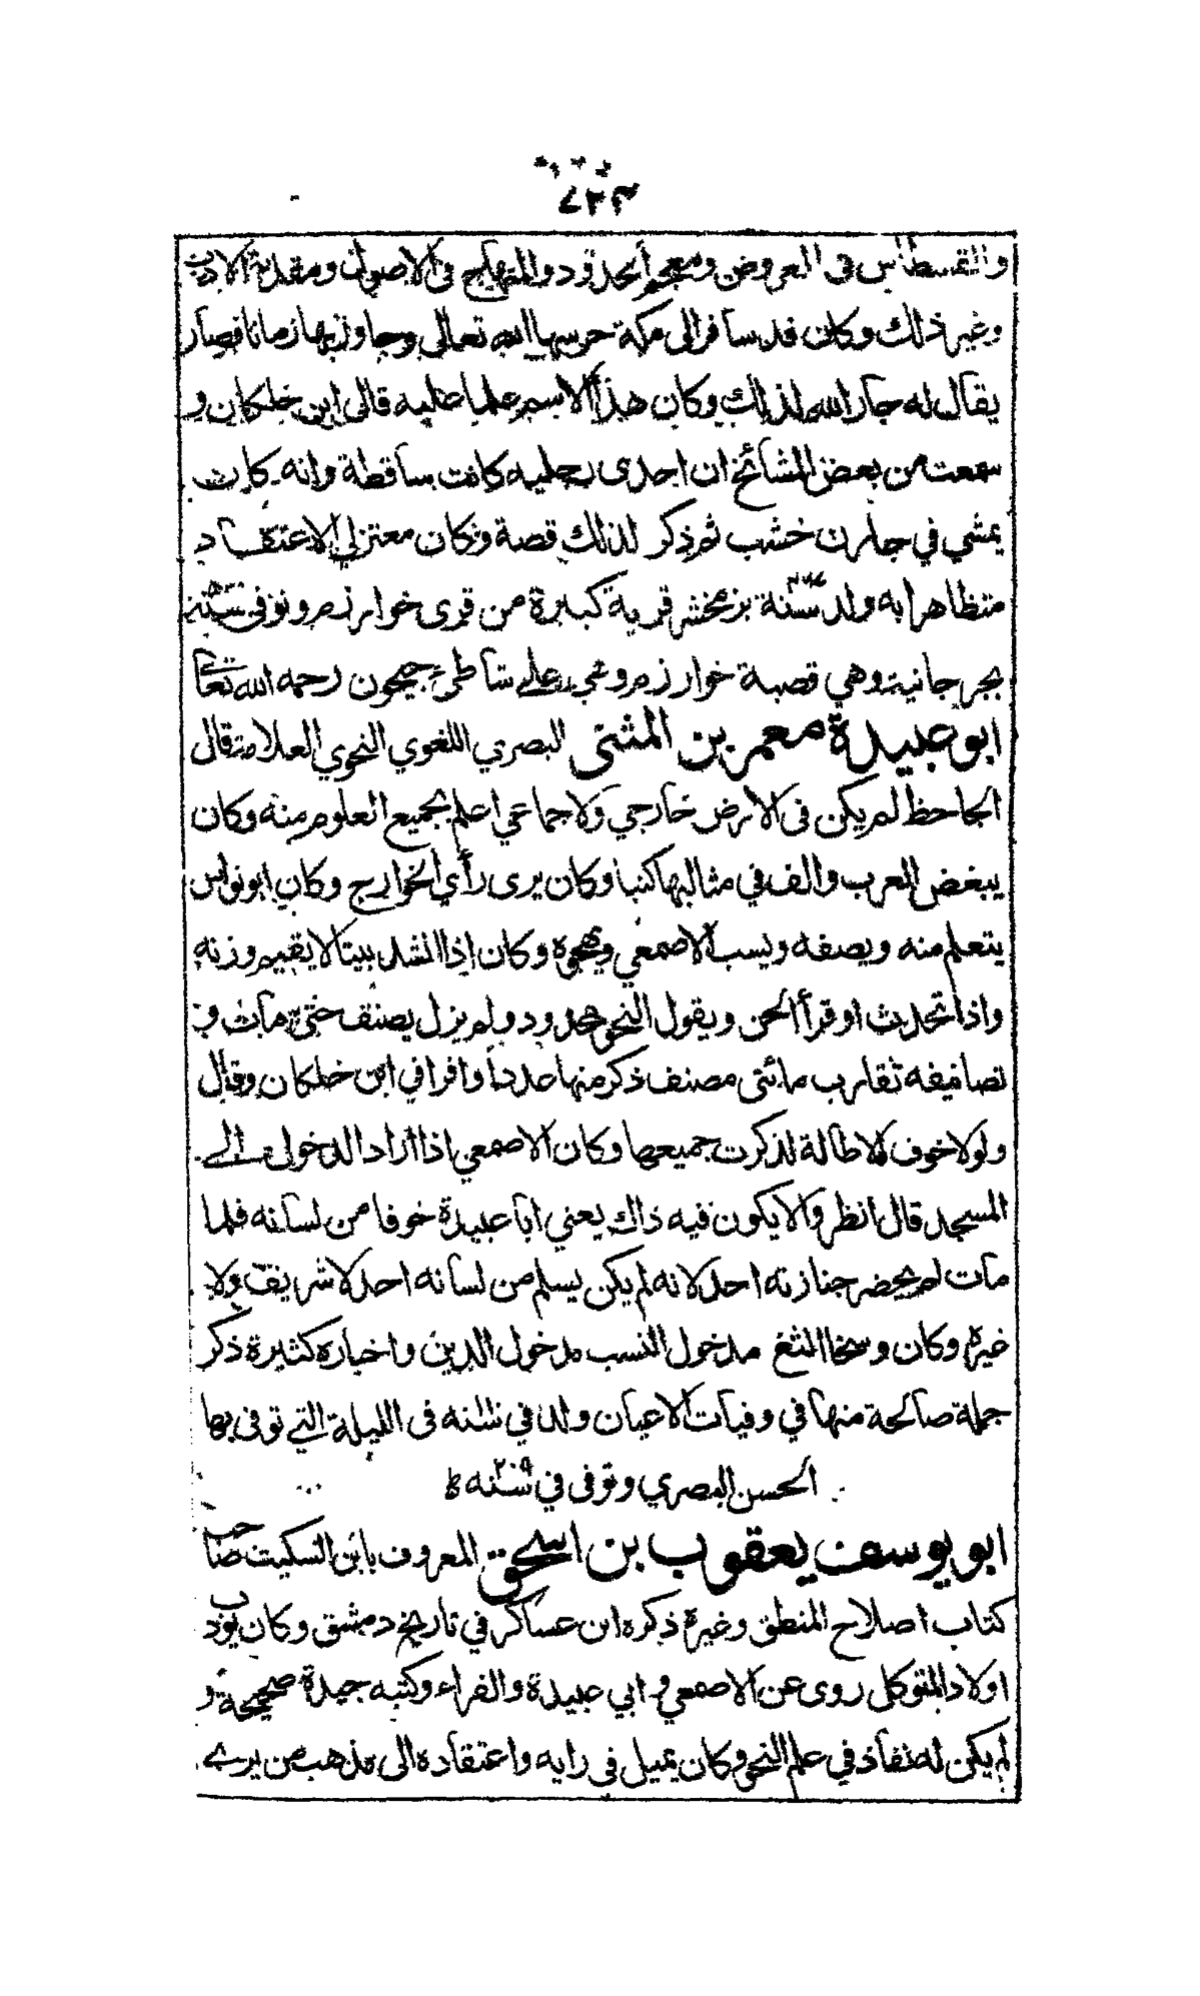 ٧٢٣
والقسطاس فى العروض ومعجم الحدود والمنهاج فى الاصول ومقدمة الادب
وغير ذلك وكان قد سافر الى مكة حرسها الله تعالى وجاور بها زمانا فصار
يقال له جار الله لذلك وكان هذا الاسم علما عليه قال ابن خلكان و
سمعت من بعض المشائخ ان احدى رجليه كانت ساقطة وانه كان
يمشي في جارن خشب ثم ذكر لذلك قصة وكان معتزلي الاعتقاد
متظاهرا به ولد سنة بزمخشر قرية كبيرة من قرى خوارزم وتوفى سنة
بجرجانية وهي قصبة خوارزم وهي على شاطئ جيحون رحمه الله تعالى
ابو عبيدة معمر بن المثنى البصري اللغوي النحوي العلامة قال
الجاحظ لم يكن فى الارض خارجي ولا جماعي اعلم بجميع العلوم منه وكان
يبغض العرب والف في مثالبها كتبا وكان يرى رأي الخوارج وكان ابو نواس
يتعلم منه ويصفه ويسب الاصمعي ويهجوه وكان إذا انشد بيتا لا يقيم وزنه
واذا تحدث او قرأ لحن ويقول النحو محدود ولم يزل يصنف حتى مات و
تصانيفه تقارب مائتى مصنف ذكر منها عددا وافرا في ابن خلكان وقال
ولولا خوف الاطالة لذكرت جميعها وكان الاصمعي اذا اراد الدخول الے
المسجد قال انظروا لا يكون فيه ذاك يعني ابا عبيدة خوفا من لسانه فلما
مات لم يحضر جنازته احد لانه لم يكن يسلم من لسانه احد لا شريف ولا
غيره وكان وسخا الثغ مدخول النسب مدخول الدين واخباره كثيرة ذكر
جملة صالحة منها في وفيات الاعيان ولد في سنه فى الليلة التي توفى بها
الحسن البصري وتوفى في سنه ٢٠٩
ابو يوسف يعقوب بن اسحق المعروف بابن السكيت صاحب
كتاب اصلاح المنطق وغيره ذكره ابن عساكر في تاريخ دمشق وكان يودب
اولاد المتوكل روى عن الاصمعي و ابي عبيدة والفراء وكتبه جيدة صحيحة و
لم يكن له نفاذ في علم النحو وكان يميل فى رايه واعتقاده الى مذهب من يرے